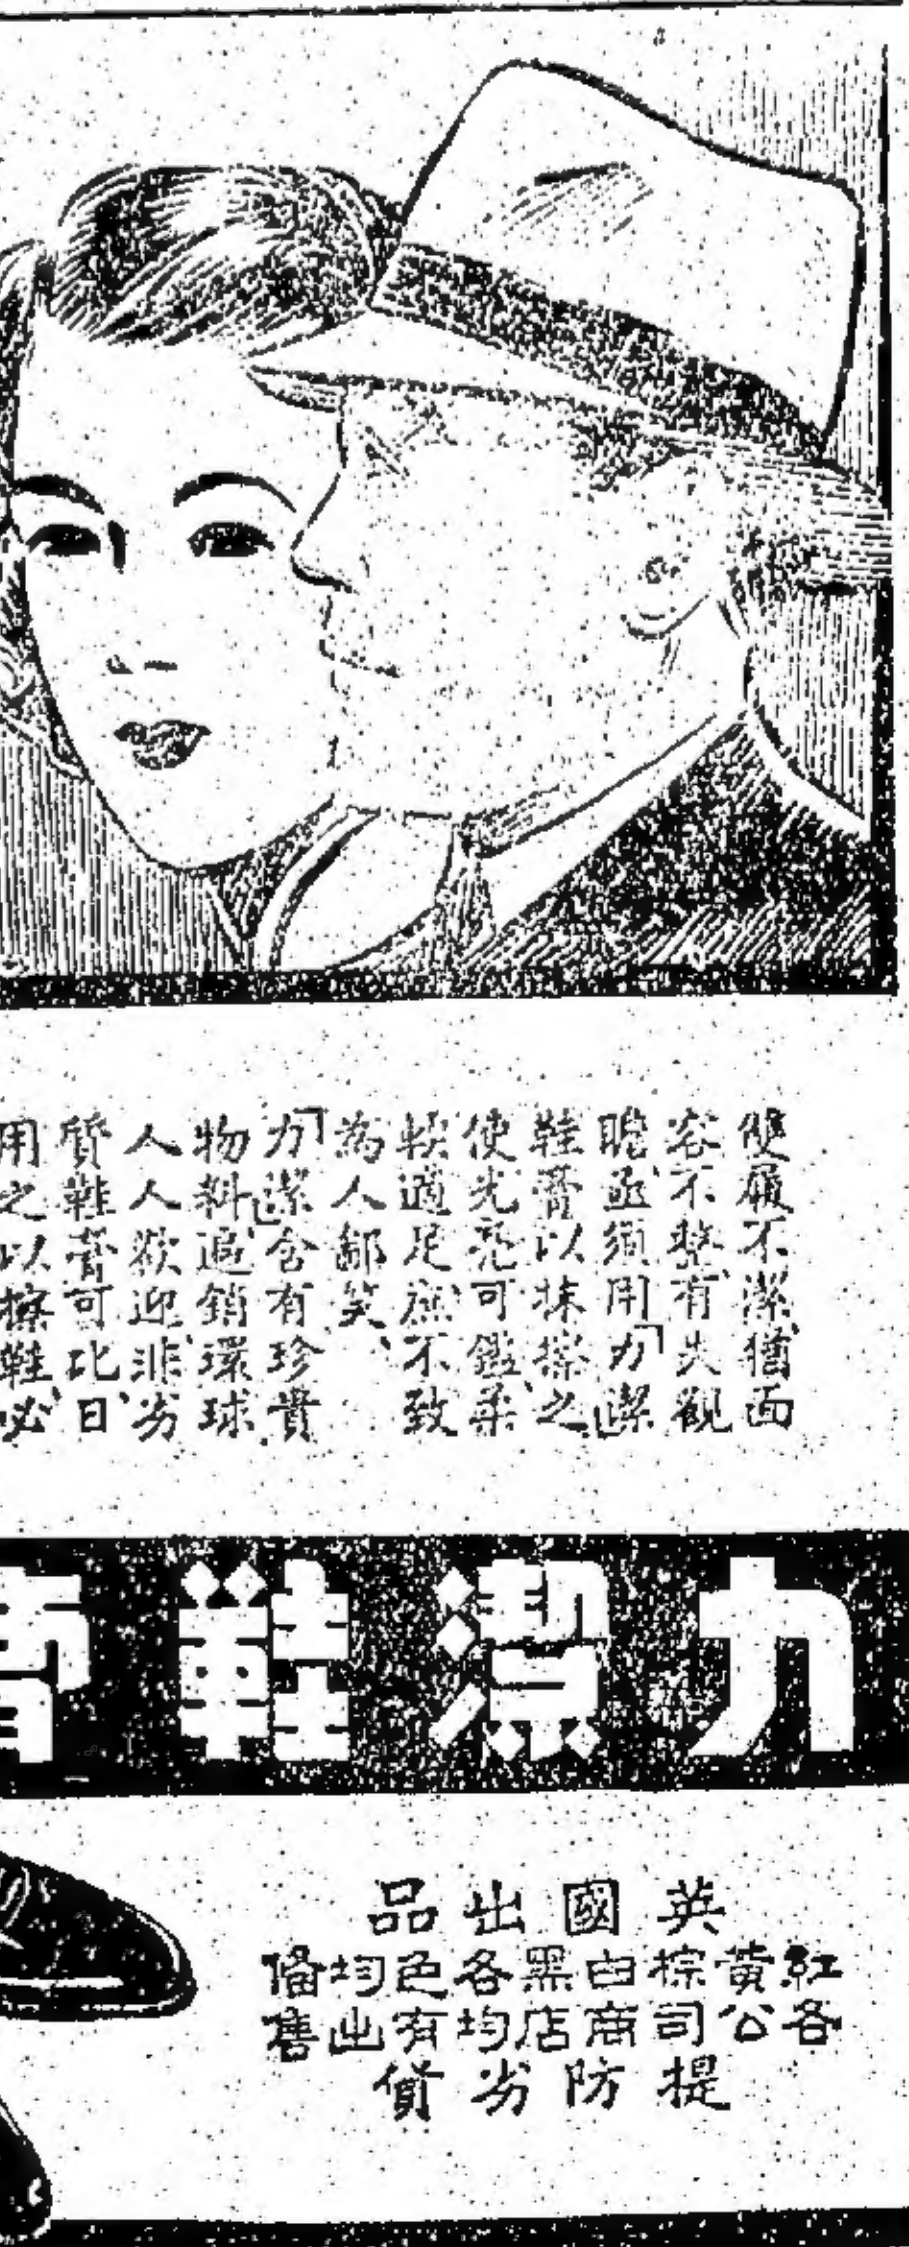 雙履不潔、猶面
容不整、有失觀
瞻、亟須用「力潔」
鞋膏以抹擦之、
使光亮可鑑、柔
軟適足、庶不致
為人鄙笑、
「力潔」含有珍貴
物料、遐銷環球、
人人歡迎、非劣
質鞋膏可比、日
用之以擦鞋、必
力潔鞋膏
英國出品
紅黃棕白黑各色均備
各公司商店均有出售
提防劣貨